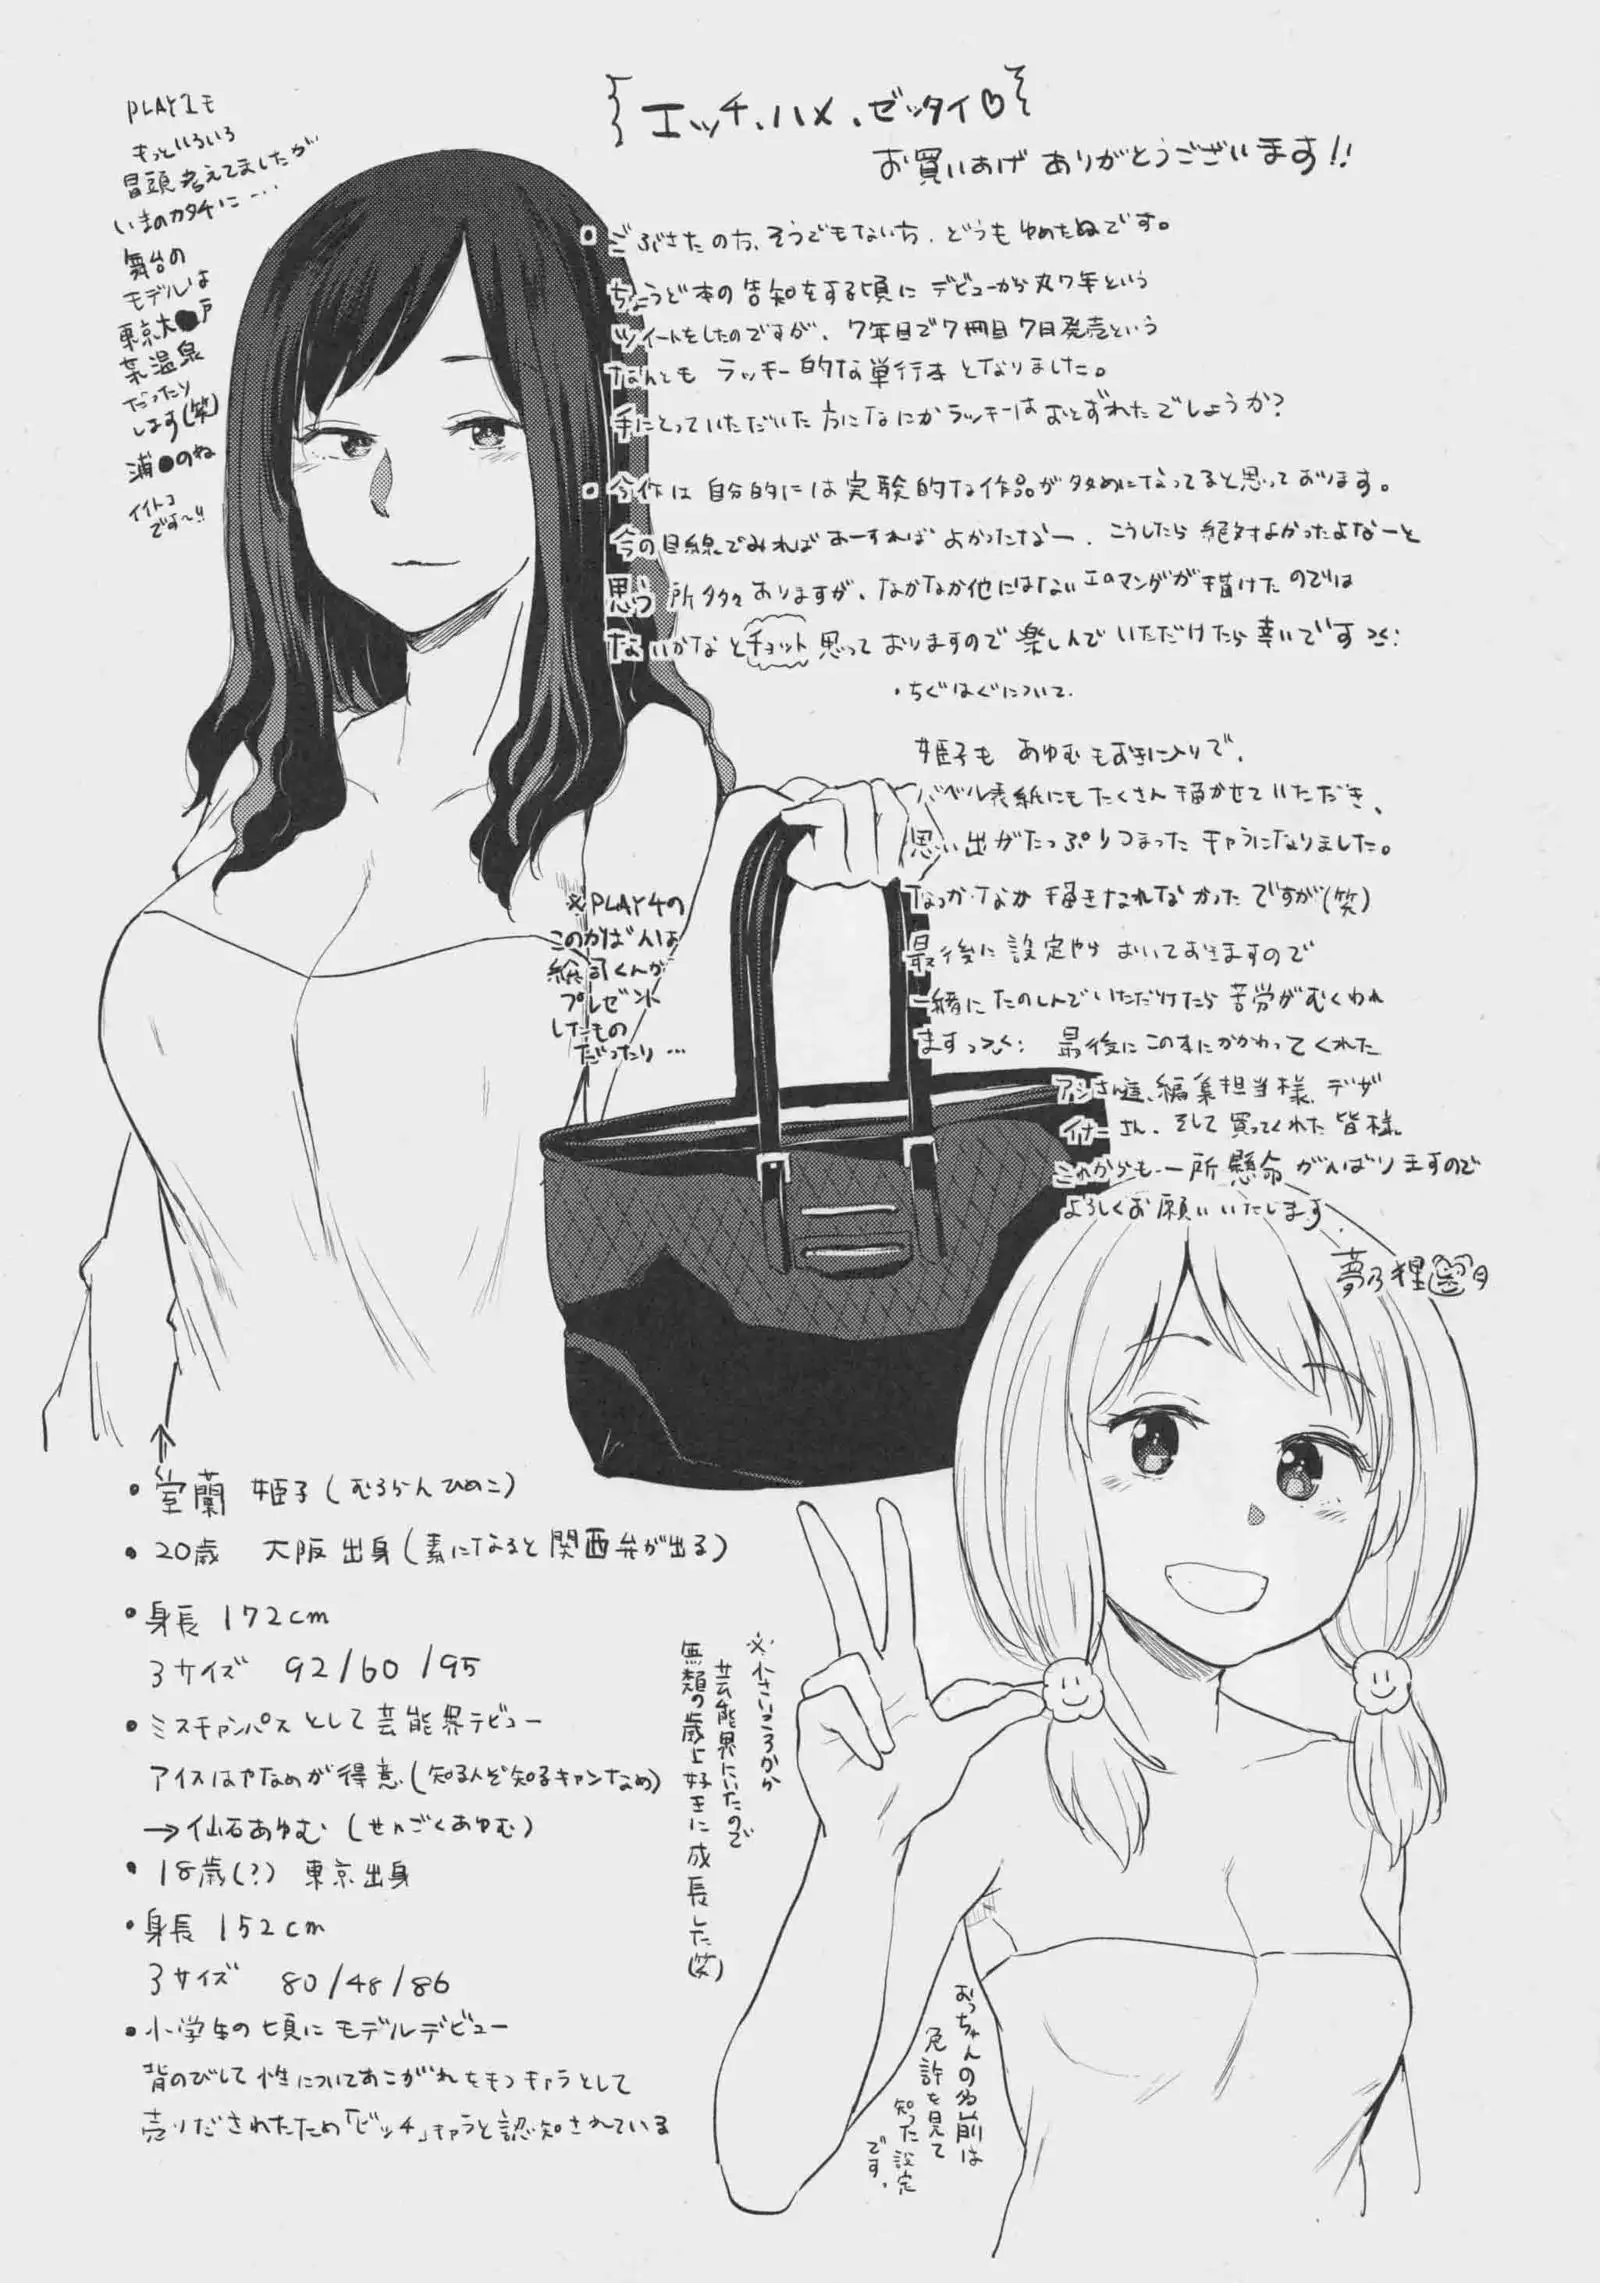 {エッチ、ハメ、ゼッタイ♡}
お買いあげ ありがとうございます!!
PLAY1も
もっといろいろ
冒頭考えてましたが
いまのカタチに…
舞台の
モデルは
東京大●戸
温泉
だったり
します(笑)
浦●のね
イイトコ
です〜!!
ごぶさたの方、そうでもない方、どうもゆめたぬです。
ちょうど本の告知をする頃に デビューから丸7年という
ツイートをしたのですが、7年目で7冊目7日発売という
なんとも ラッキー的な単行本 となりました。
手にとっていただいた方になにかラッキーはおとずれたでしょうか?
今作は 自分的には実験的な作品が多めになってると思っております。
今の目線でみればあーすればよかったなー、こうしたら絶対よかったよなーと
思う所多々ありますが、なかなか他にはないエロマンガが描けたのでは
ないかなとチョット思っておりますので楽しんでいただけたら幸いです
・ちぐはぐについて.
姫子も あゆむもお気に入りで、
バベル表紙にもたくさん描かせていただき、
思い出がたっぷりつまったキャラになりました。
なっかなか描きなれなかったですが(笑)
最後に設定やら おいておきますので
一緒にたのしんでいただけたら苦労がむくわれ
ます 最後にこの本にかかわってくれた
アシさん達、編集担当様、デザ
イナーさん、そして買ってくれた皆様
これからも一所懸命がんばりますので
よろしくお願いいたします.
夢乃狸
※PLAY4の
このかばんは
くんが
プレゼント
したもの
だったり…
・室蘭 姫子(むろらんひめこ)
・20歳 大阪出身(素になると関西弁が出る)
・身長 172cm
3サイズ 92/60/95
・ミスキャンパスとして芸能界デビュー
アイスはやなめが得意(知る人ぞ知るキャンなめ)
→仙石あゆむ (せんごくあゆむ)
・18歳(?) 東京出身
・身長 152cm
3サイズ 80/48/86
・小学生の頃に モデルデビュー
背のびして性についてあこがれをもつキャラとして
売りだされたため「ビッチ」キャラと認知されている
※小さいころから
芸能界にいたので
無類の歳上好きに成長した(笑)
おっちゃんの名前は
免許を見て
知った設定
です。